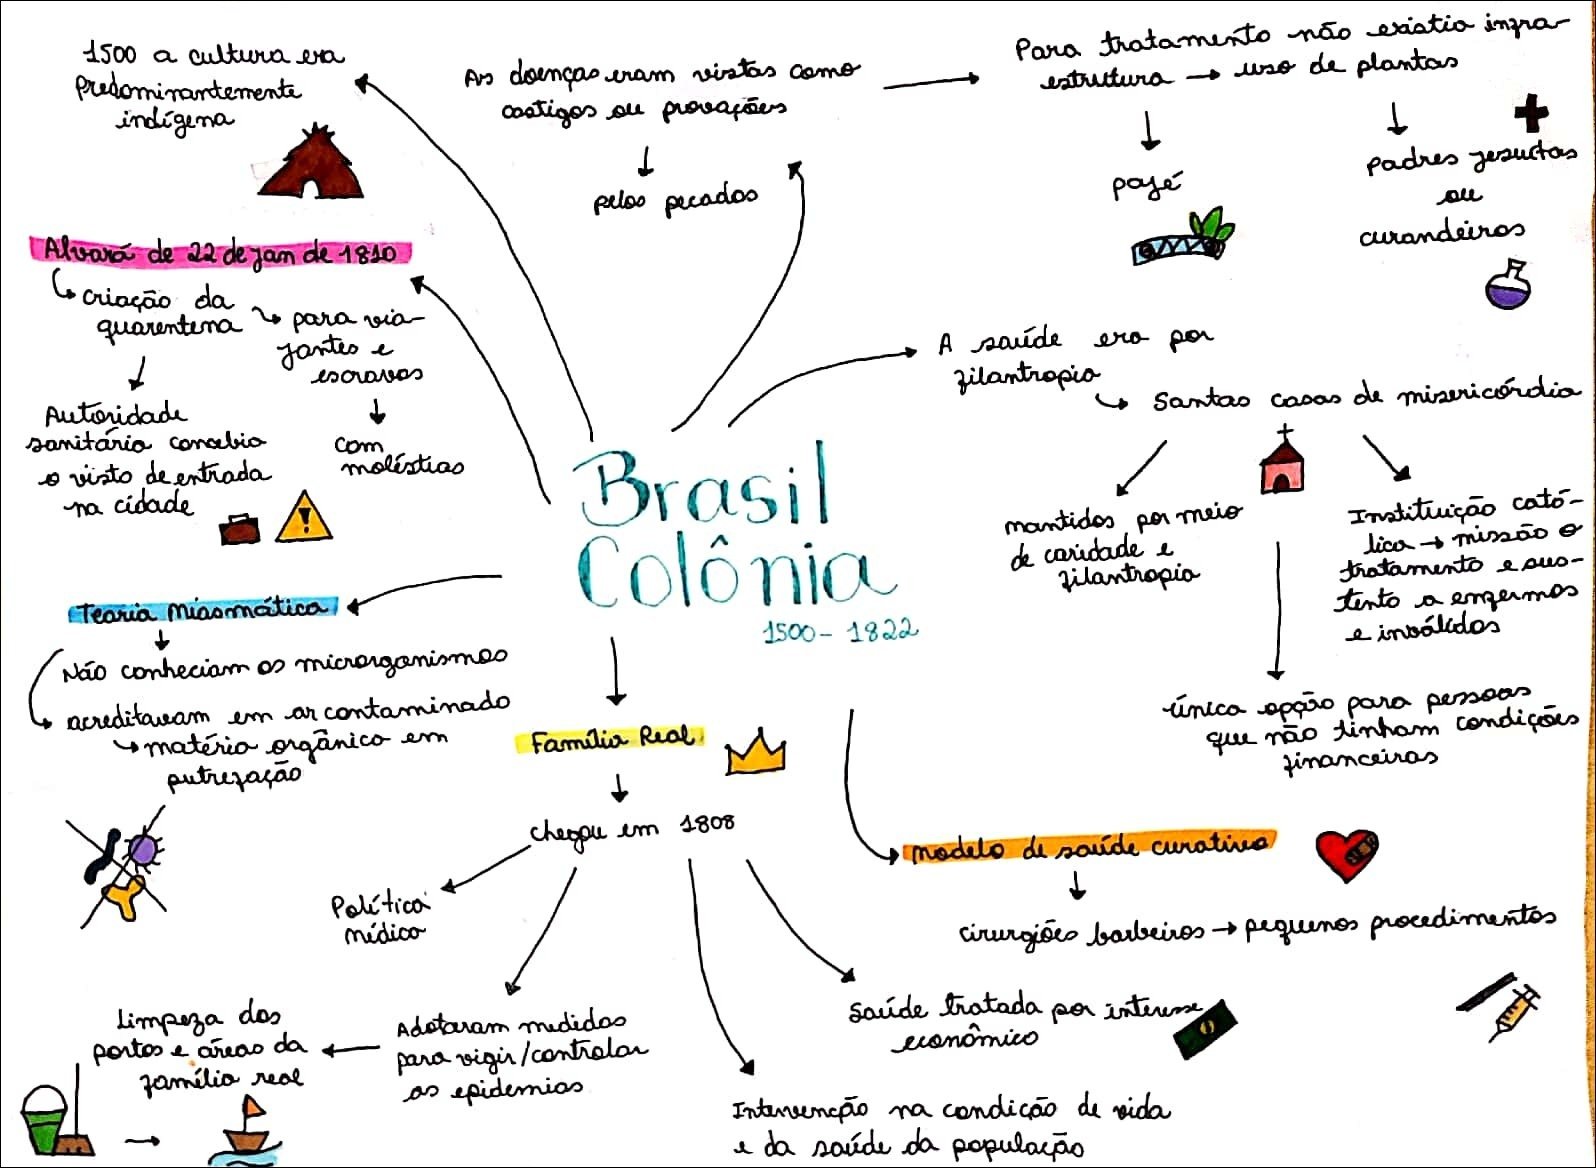 1500 a cultura era
predominantemente
indígena
As doenças eram vistas como
castigos ou provações
pelos pecados
Para tratamento não existia infra-
estrutura → uso de plantas
pajé
padres jesuítas
ou
curandeiros
Alvará de 22 de jan de 1810
criação da
quarentena
para via-
jantes e
escravos
com
moléstias
Autoridade
sanitária concebia
o visto de entrada
na cidade
A saúde era por
filantropia
Santas casas de misericórdia
mantidos por meio
de caridade e
filantropia
Instituição cató-
lica → missão o
tratamento e sus-
tento a enfermos
e inválidos
única opção para pessoas
que não tinham condições
financeiras
Brasil
Colônia
1500 - 1822
Teoria Miasmática
Não conheciam os microrganismos
acreditavam em ar contaminado
matéria orgânica em
putrefação
Família Real
chegou em 1808
Política
médica
Adotaram medidas
para vigir/controlar
as epidemias
Limpeza dos
portos e áreas da
família real
Intervenção na condição de vida
e da saúde da população
Saúde tratada por interesse
econômico
modelo de saúde curativa
cirurgiões barbeiros → pequenos procedimentos